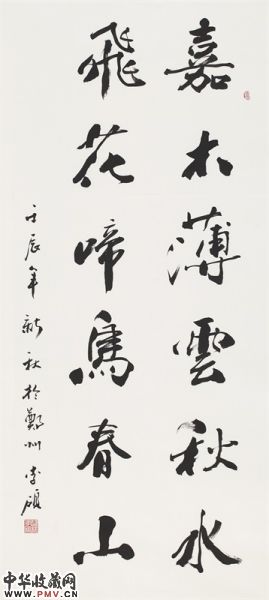 嘉木薄雲秋水
飛花啼鳥春山
壬辰年新秋於鄭州李頎
中华收藏网
www.PMV.cn